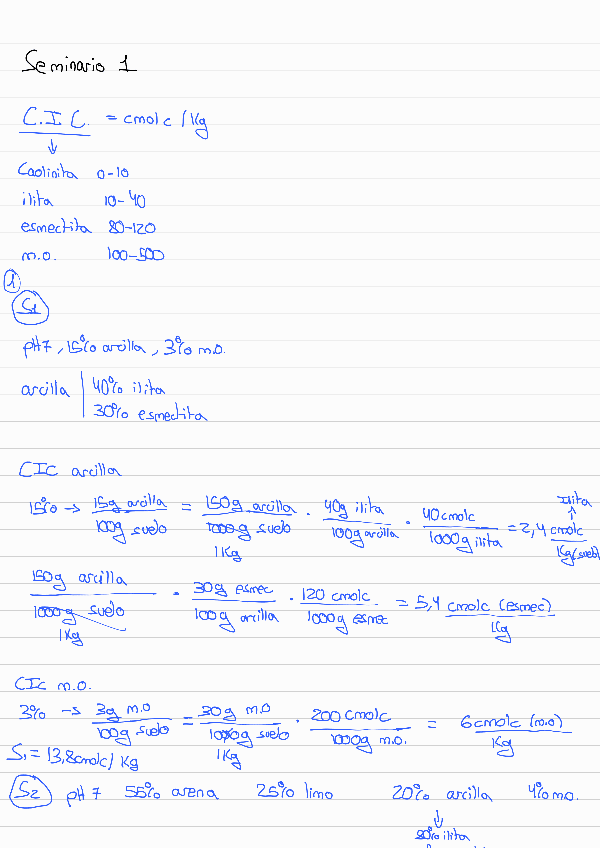 Seminario 1
C.I.C. = cmolc / Kg
↓
Caolinita 0-10
ilita 10-40
esmectita 80-120
m.o. 100-500
1
S1
pH7, 15% arcilla, 3% m.o.
arcilla | 40% ilita
30% esmectita
CIC arcilla
15% → 15g arcilla / 100g suelo = 150g arcilla / 1000g suelo 1Kg · 40g ilita / 100g arcilla · 40 cmolc / 1000g ilita = 2,4 cmolc / Kg (suelo) ↑ Ilita
150g arcilla / 1000g suelo 1Kg · 30g esmec / 100g arcilla · 120 cmolc / 1000g esmec = 5,4 cmolc (esmec) / Kg
CIC m.o.
3% → 3g m.o / 100g suelo = 30g m.o / 1000g suelo 1Kg · 200 cmolc / 1000g m.o. = 6 cmolc (m.o) / Kg
S1 = 13,8 cmolc / Kg
S2 pH 7 55% arena 25% limo 20% arcilla 4% m.o.
↓
80% ilita